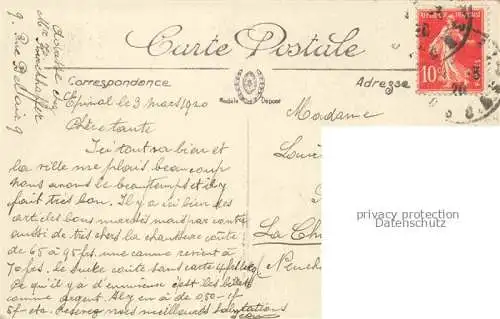 Carte Postale
Correspondance
Adresse
Modèle Déposé
REPUBLIQUE FRANÇAISE
10
POSTES
9. Rue
Epinal le 3 mars 1920
Chère tante
Ici tout va bien et
la ville me plais beaucoup
nous avons le beau temps et il y
fait très bon. Il y a ici bien des
articles bons marchés mais par contre
aussi de très chers la chaussure coûte
de 65 à 95 frs. une canne revient à
70 frs. le sucre coûte sans carte 4 frs le kg
Ce qu'il y a d'ennuyeux c'est les billets
comme argent. Il y en a de 0,50 - 1f
5f etc. Recevez mes meilleures salutations
Madame
La Ch
Neuch
privacy protection
Datenschutz